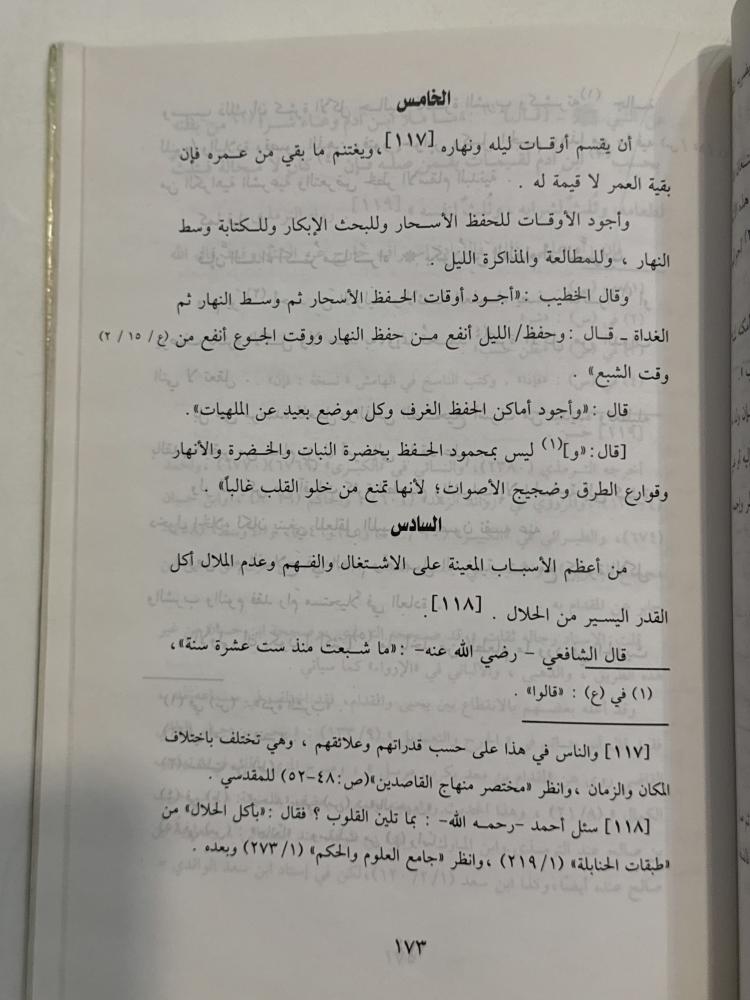 الخامس
أن يقسم أوقات ليله ونهاره [١١٧]،ويغتنم ما بقي من عمره فإن
بقية العمر لا قيمة له .
وأجود الأوقات للحفظ الأسحار وللبحث الإبكار وللكتابة وسط
النهار ، وللمطالعة والمذاكرة الليل .
وقال الخطيب :«أجود أوقات الحفظ الأسحار ثم وسط النهار ثم
الغداة ـ قال :وحفظ/الليل أنفع من حفظ النهار ووقت الجوع أنفع من (ع/ ١٥ / ٢)
وقت الشبع» .
قال :«وأجود أماكن الحفظ الغرف وكل موضع بعيد عن الملهيات».
[قال:«و](١) ليس بمحمود الحفظ بحضرة النبات والخضرة والأنهار
وقوارع الطرق وضجيج الأصوات؛ لأنها تمنع من خلو القلب غالباً» .
السادس
من أعظم الأسباب المعينة على الاشتغال والفهم وعدم الملال أكل
القدر اليسير من الحلال . [١١٨].
قال الشافعي – رضي الله عنه– :«ما شبعت منذ ست عشرة سنة»،
(١) في (ع) : «قالوا» .
[١١٧] والناس في هذا على حسب قدراتهم وعلائقهم ، وهي تختلف باختلاف
المكان والزمان ،وانظر «مختصر منهاج القاصدين»(ص:٤٨-٥٢) للمقدسي .
[١١٨] سئل أحمد –رحمه الله– : بما تلين القلوب ؟ فقال :«بأكل الحلال» من
«طبقات الحنابلة» (٢١٩/١) ،وانظر «جامع العلوم والحكم» (٢٧٣/١) وبعده .
١٧٣